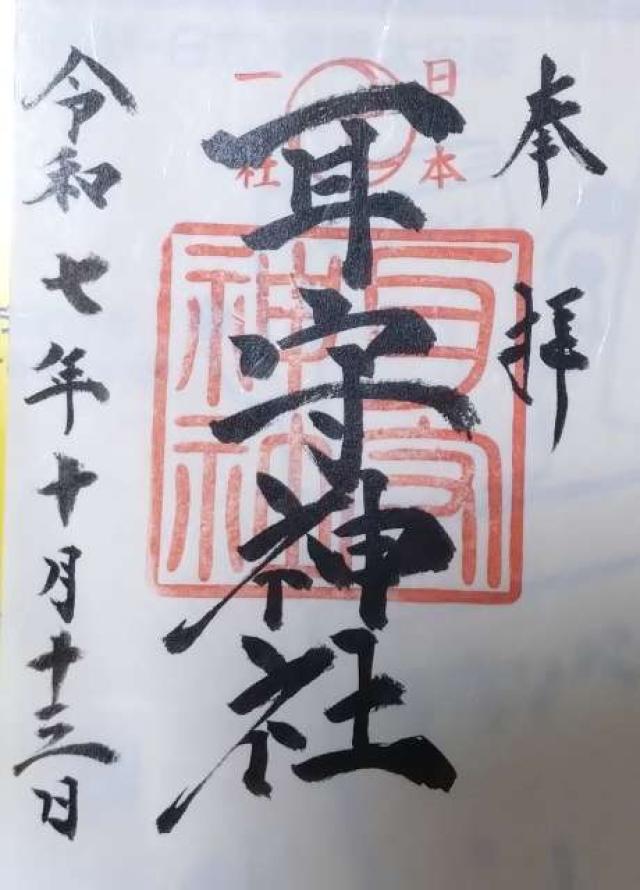 奉拝
日本
一社
耳守神社
耳守
神社
令和七年十月十三日